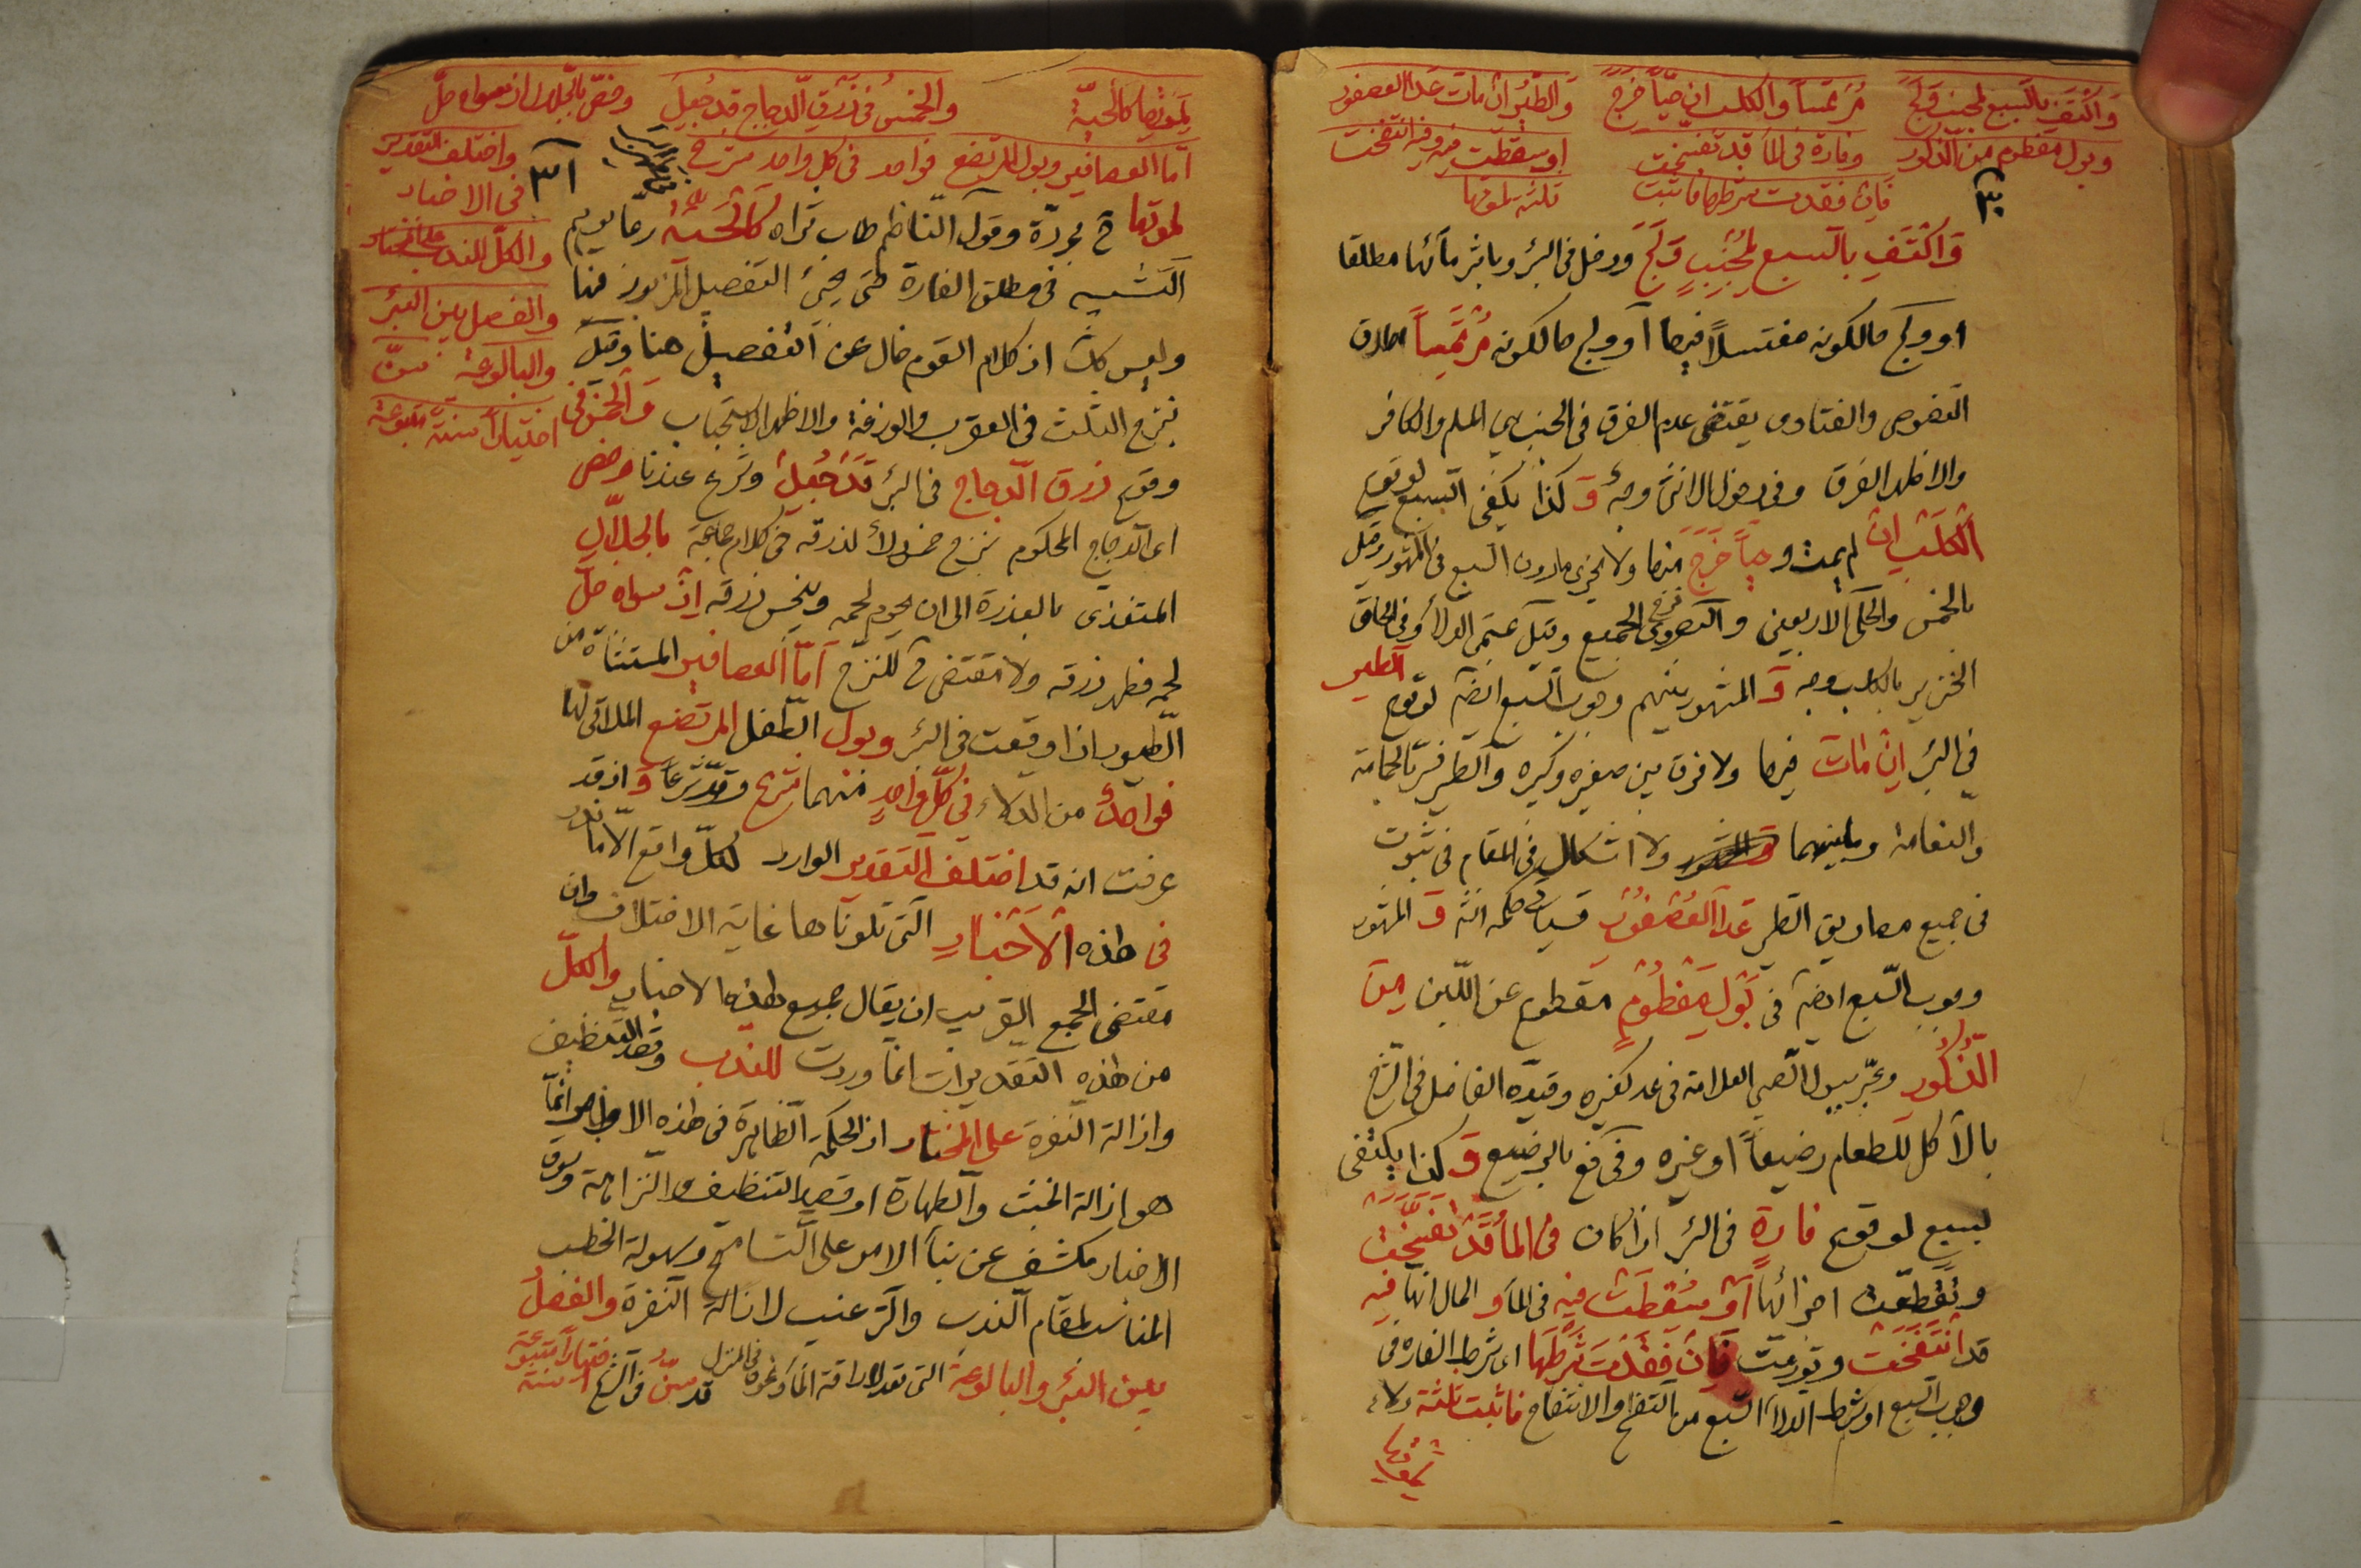 وَاكْتَفِ بالسبع لجنب وَلَجَ
مُرتَمساً والكلب ان حيّاً خَرَجَ
وَالطَّيْر ان مات عَدَا العصفور
وبول مفطوم من الذكور
وفارة في الماء قد تفسّخت
او سقطت فيه وفيه انتفخت
فان فقدت شرطها فاثبت
ثلثة لموتها
٣٠
وَاكْتَفِ بالسبع لِجُنُبٍ وَلَجَ ودخل في البئر وباشر مائها مطلقا
او ولج حالكونه مغتسلاً فيها أو ولج حالكونه مُرْتَمِساً اطلاق
النصوص والفتاوى يقتضى عدم الفرق في الجنب بين المسلم والكافر
والاظهر الفرق وفى دخول الانثى وجهٌ وَ كذا يكفى السبع لوقوع
الْكَلْبِ انْ لم يمت و حيّاً خَرَجَ منها ولا يجزى مادون السبع في المشهور وقيل
بالخمس والحلّى الاربعين والبصروى نزح الجميع وقيل عتمى الولا وفى الحاق
الخنزير بالكلب وجه وَ المشهور بينهم وجوب السبع ايضا لوقوع الطير
في البئر اِنْ مَاتَ فيها ولا فرق بين صغيره وكبيره والطير فسّر بالحمامة
والنعامة وما بينهما ولا اشكال في المقام في ثبوت
في جميع مصاديق الطير عَدَا الْعُصْفُورِ فسيأتى حكمه انشه وَ المشهور
وجوب السبع ايضا في بَوْلِ مَفْطُومٍ مقطوع عن اللبن مِنَ
الذُّكُورِ وعبّر ببول الصبي العلامة في عد كغيره وقيّده الفاضل في الشرح
بالآكل للطعام رضيعاً او غيره وفى فع بالرضيع وَ كذا يكتفى
بسبع لوقوع فارةٍ في البئر اذا كان في الماء قَدْ تَفَسَّخَتْ
وتَقَطَّعَتْ اجزائُها أَوْ سَقَطَتْ فيه في الماء و الحال انها فيه
قد انْتَفَخَتْ وتورمت فَاِنْ فَقَدْتَ شَرْطَهَا اى شرط الفارة في
وجوب السبع او شرط الدلاء السبع من التفسّخ والانتفاخ فاثبت ثلثة دلاء
لموتها
لموتها كالحيّة
والخمسُ في ذرق الدجاج قد جُعِلَ
وخصّ بالجلال اذ سواه حلّ
اما العصافير وبول المرتضع
فواحد في كل واحد منزح
واختلف التقدير
في الاخبار
والكلّ للندب على المختار
والفصل بين البئر
والبالوعة سنّ
اختياراً سنة متبوعة
٣١
لموتها ح مجرّدة وقول الناظم طاب ثراه كَالْحَيَّةِ ربّما يوهم
التشبيه في مطلق الفارة حتى يجئ التفصيل المزبور فيها
وليس كك اذ كلام القوم خال عن التفصيل هنا وقيل
بنزح الثلث في العقرب والوزغة والاظهر الاستحباب وَالْخَمْسُ في
وقوع ذرق الدجاج في البئر قَدْ جُعِلَ وشرع عندنا وخصّ
اى الدجاج المحكوم بنزح خمس دلاء لذرقه في كلام جماعة بالجلّالِ
المتغذى بالعذرة الى ان يحرم لحمه وينجس ذرقه اِذْ سواه حلّ
لحمه فطهر ذرقه ولا مقتضى ح للنزح أمّا العصافير المستثناة من
الطيور اذا وقعت في البئر وبول الطفل المرتضع الملاقى لها
فواحدٌ من الدلاء في كلّ واحدٍ منهما نزح وقدّر شرعا وَ اذ قد
عرفت انه قد اختلف التقدير الوارد لكلّ واقع الا ما ندر
في هذه الْاَخْبَارِ التى تلوناها غاية الاختلاف كان
مقتضى الجمع القريب ان يقال جميع هذه الاخبار والكلّ
من هذه التقديرات انما وردت للندب وقصد التنظيف
وازالة النفرة على المختار اذ الحكمة الظاهرة في هذه الاوامر انّما
هو ازالة الخبث والطهارة او قصد التنظيف والنزاهة وسوق
الاخبار مكشف عن بناء الامر على التسامح وسهولة الخطب
المناسب لمقام الندب والترغيب لازالة النفرة والفصلُ
بين البئر والبالوعة التى تعد لاراقة الماء وغيره في المنزل قد سُنَّ في الشرع اختياراً سنة متبوعة